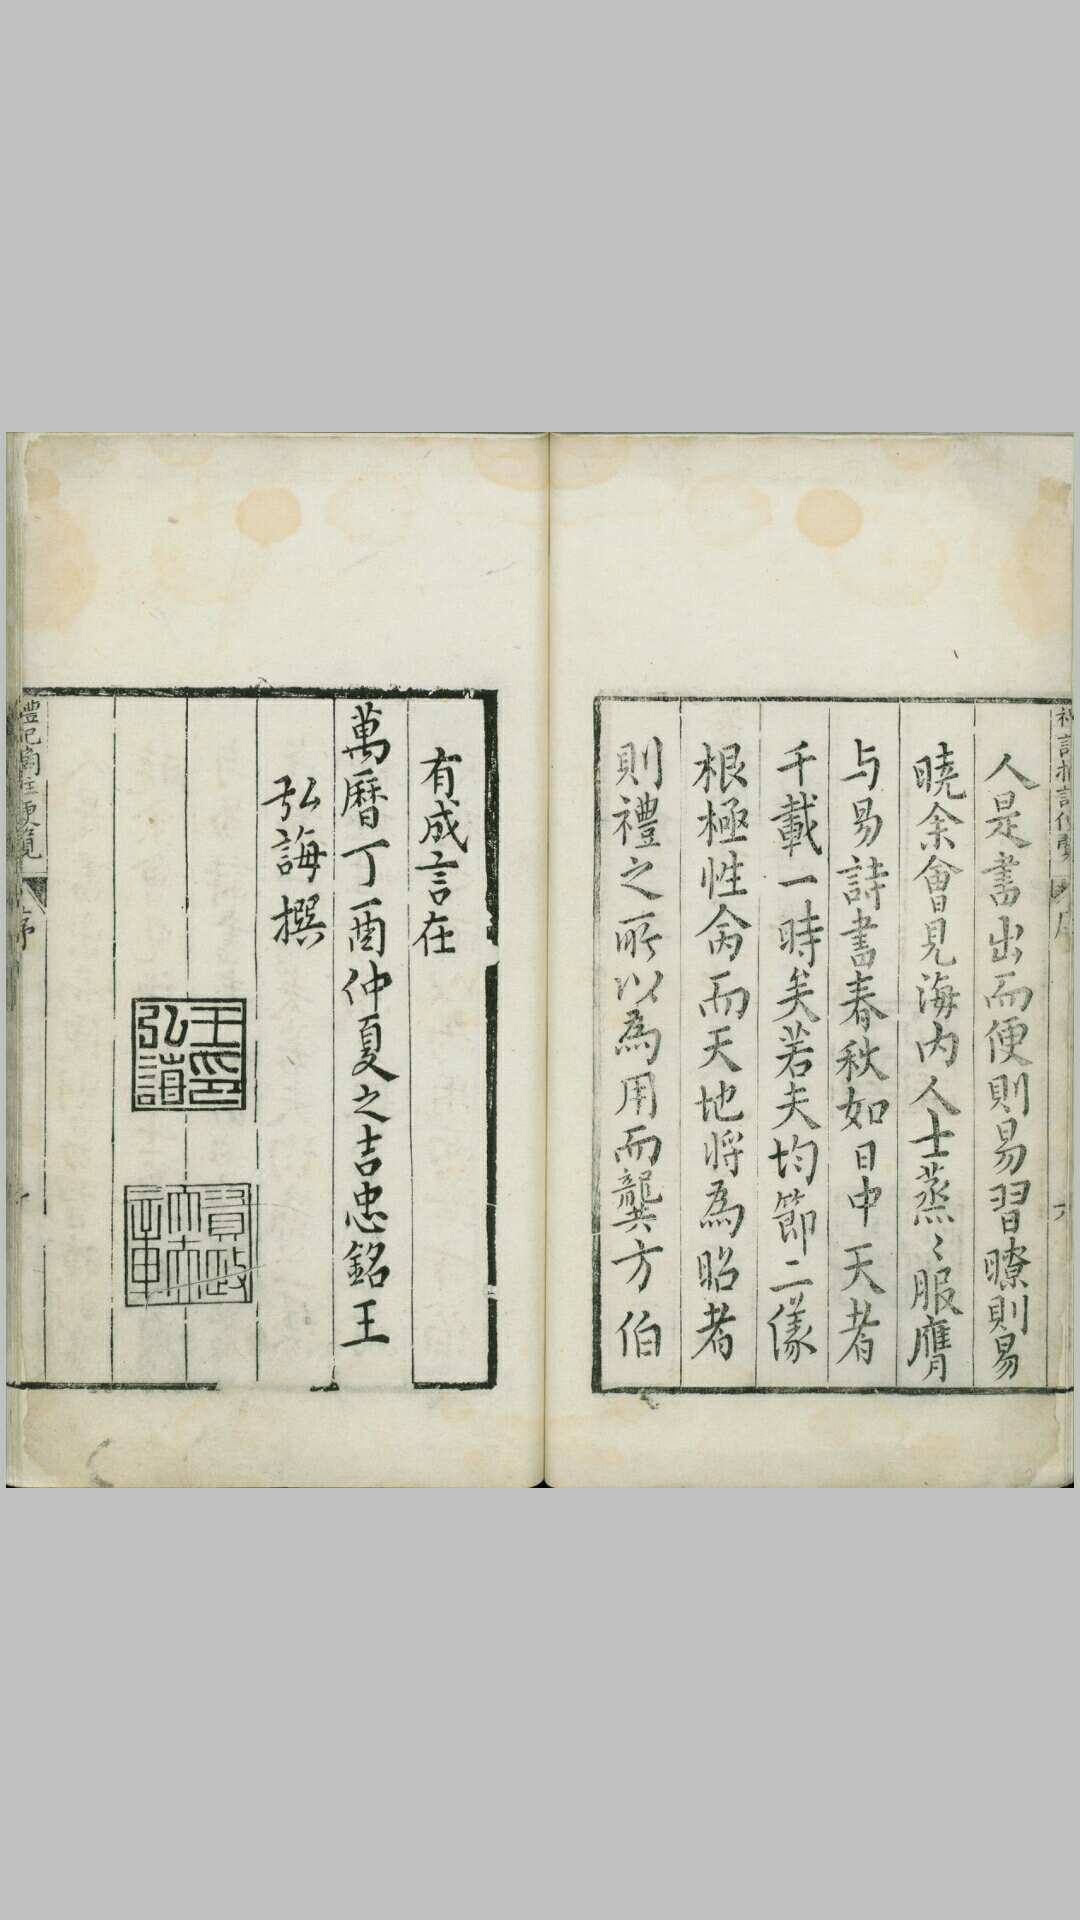 人是書出而便則易習瞭則易
曉余會見海内人士蒸〻服膺
与易詩書春秋如日中天者
千載一時矣若夫均節二儀
根極性命而天地將為昭者
則禮之所以為用而龔方伯
有成言在
萬曆丁酉仲夏之吉忠銘王
弘誨撰
王印弘誨